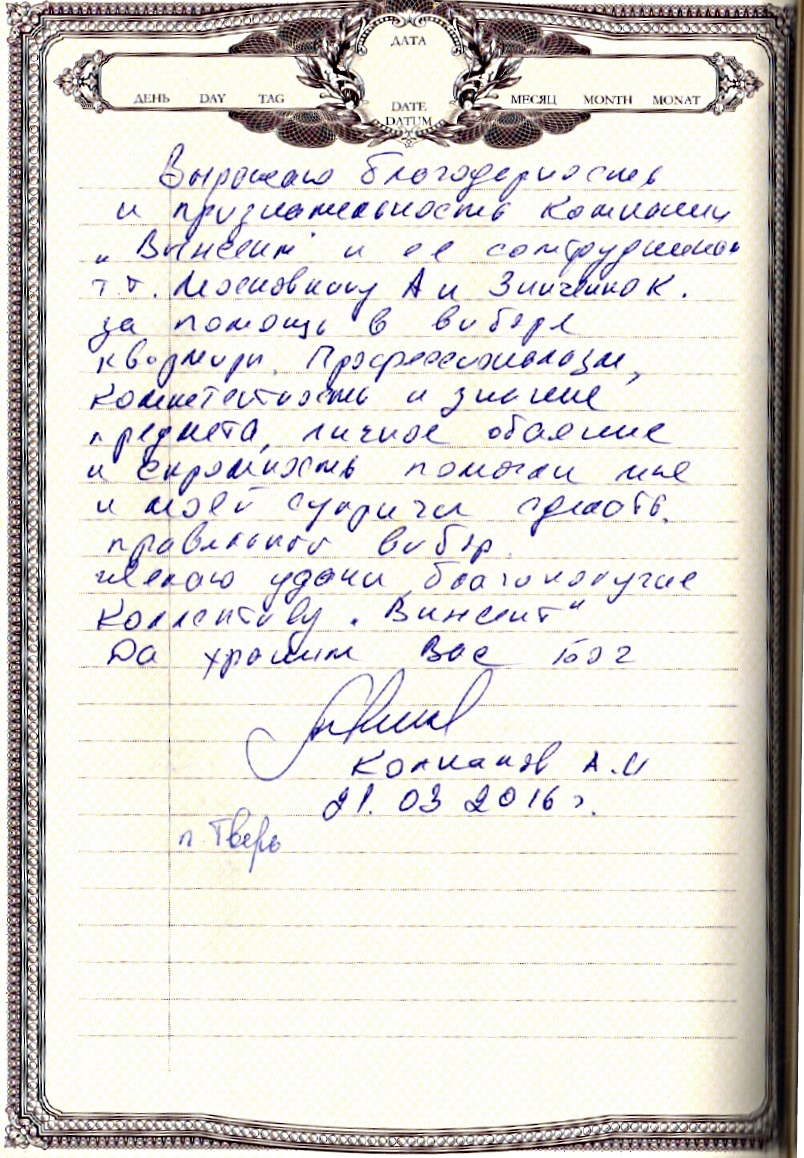 ДАТА
ДЕНЬ DAY TAG
DATE
DATUM
МЕСЯЦ MONTH MONAT
Выражаю благодарность
и признательность компании
„Винсент" и ее сотрудникам
т.т. Московкину А и Зинченко К.
за помощь в выборе
квартиры. Профессионализм,
компетентность и знание
предмета, личное обаяние
и скромность помогли мне
и моей супруги сделать
правильный выбор.
желаю удачи, благополучие
Коллективу „Винсент"
Да хранит Вас Бог
Колпаков А.И
21.03 2016 г.
г. Тверь